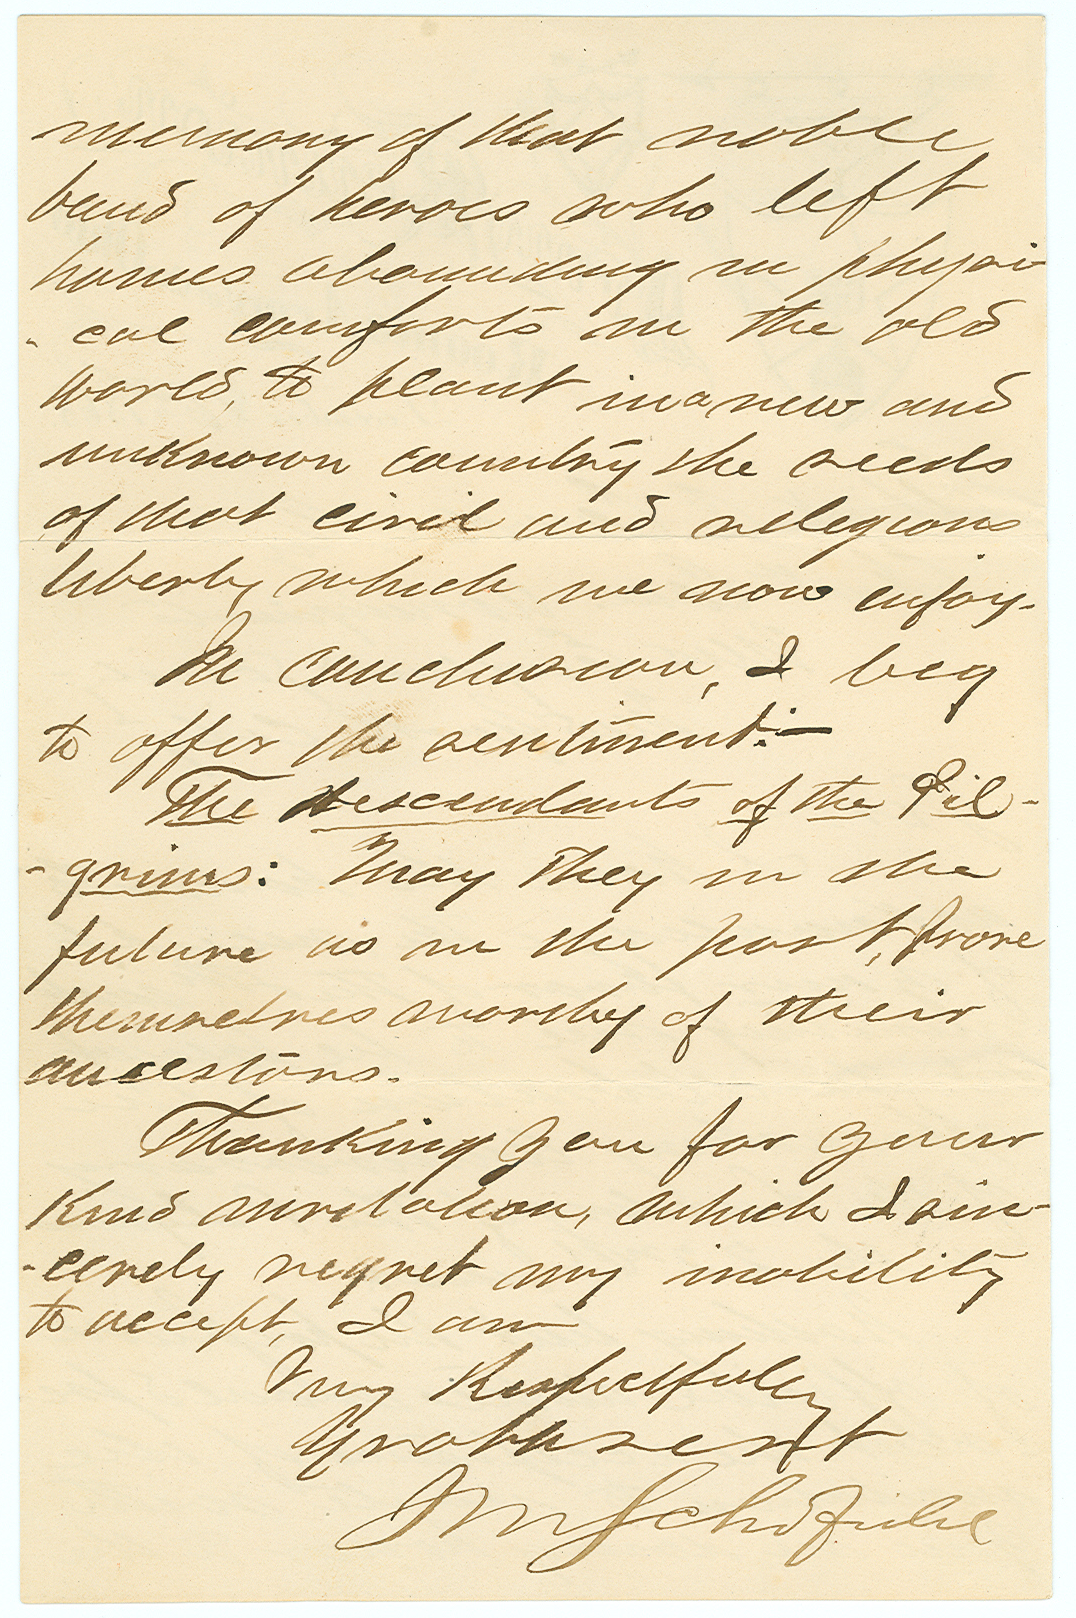 memory of that noble
band of heroes who left
homes abounding in physi-
- cal comforts in the old
world, to plant in a new and
unknown country the seeds
of that civil and religious
liberty which we now enjoy.
In conclusion, I beg
to offer the sentiment:—
The descendants of the Pil-
- grims: May they in the
future as in the past, prove
themselves worthy of their
ancestors.
Thanking you for your
kind invitation, which I sin-
- cerely regret my inability
to accept, I am
Very Respectfully
Yr obt servt
J M Schofield